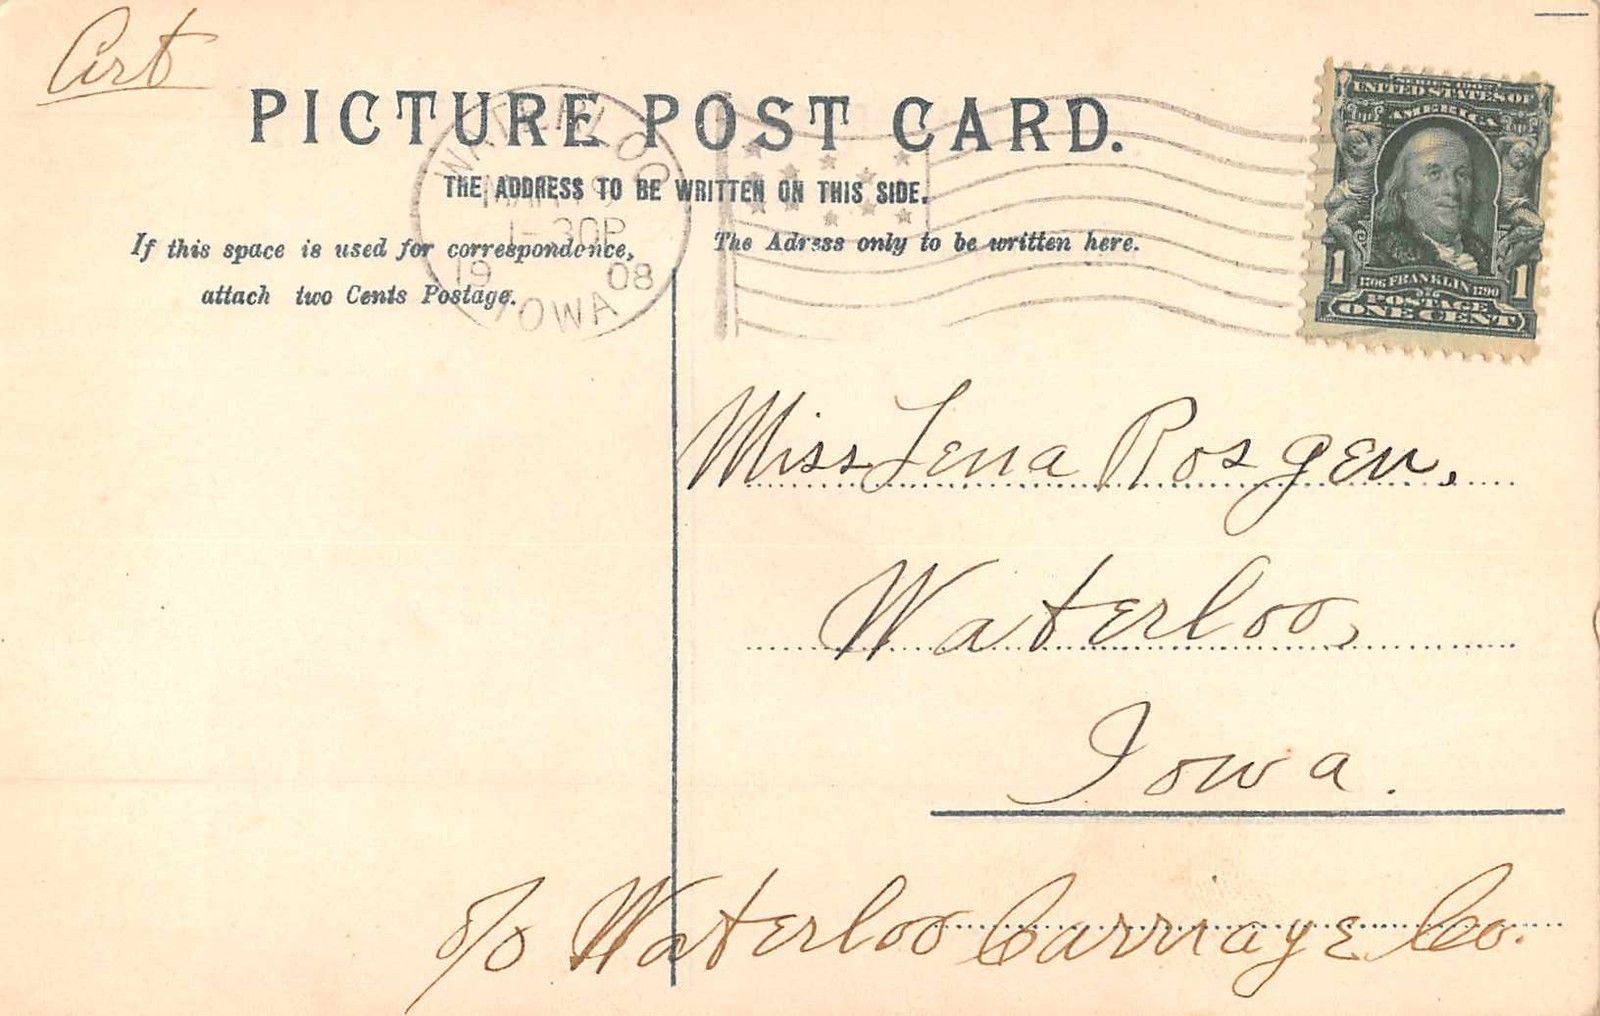 Art
PICTURE POST CARD.
THE ADDRESS TO BE WRITTEN ON THIS SIDE.
If this space is used for correspondence,
attach two Cents Postage.
The Adress only to be written here.
WATERLOO
1-30P
19 08
IOWA
SERIES 1902
UNITED STATES OF
AMERICA
1 1
1706 FRANKLIN 1790
POSTAGE
ONE CENT
Miss Lena Rosgen,
Waterloo,
Iowa.
c/o Waterloo Carriage Co.